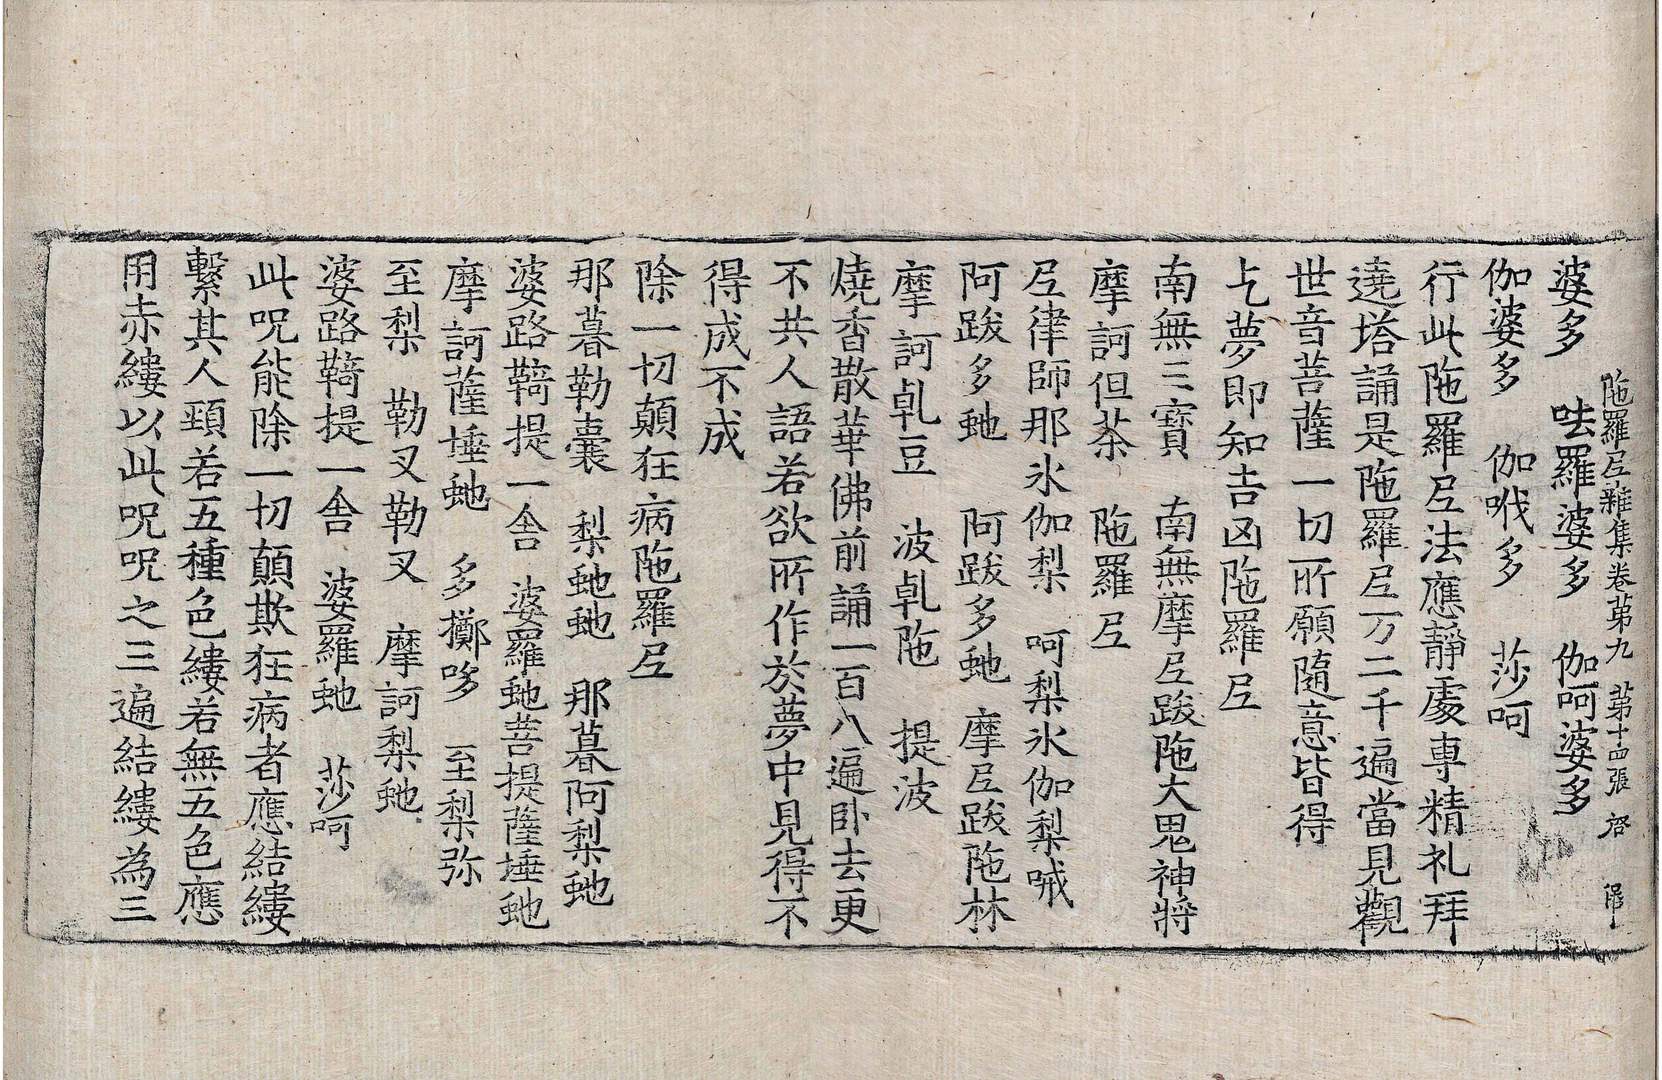 陁羅𡰱雜集卷第九 第十四張 啓
婆多 呿羅婆多 伽呵婆多
伽婆多 伽哦多 莎呵
行此陁羅𡰱法應靜處專精礼拜
遶塔誦是陁羅𡰱万二千遍當見觀
世音菩薩一切所願隨意皆得
乞夢即知吉凶陁羅𡰱
南無三寶 南無摩𡰱跋陁大鬼神將
摩訶但荼 陁羅𡰱
𡰱律師那氷伽梨 呵梨氷伽梨㖑
阿跋多虵 阿跋多虵 摩𡰱跋陁林
摩訶乹豆 波乹陁 提波
燒香散華佛前誦一百八遍卧去更
不共人語若欲所作於夢中見得不
得成不成
除一切顛狂病陁羅𡰱
那暮勒囊 梨虵虵 那暮阿梨虵
婆路鞯提一舍 婆羅虵菩提薩埵虵
摩訶薩埵虵 多擲哆 至梨弥
至梨 勒叉勒叉 摩訶梨虵
婆路鞯提一舍 婆羅虵 莎呵
此呪能除一切顛欺狂病者應結縷
繫其人頸若五種色縷若無五色應
用赤縷以此呪呪之三遍結縷為三